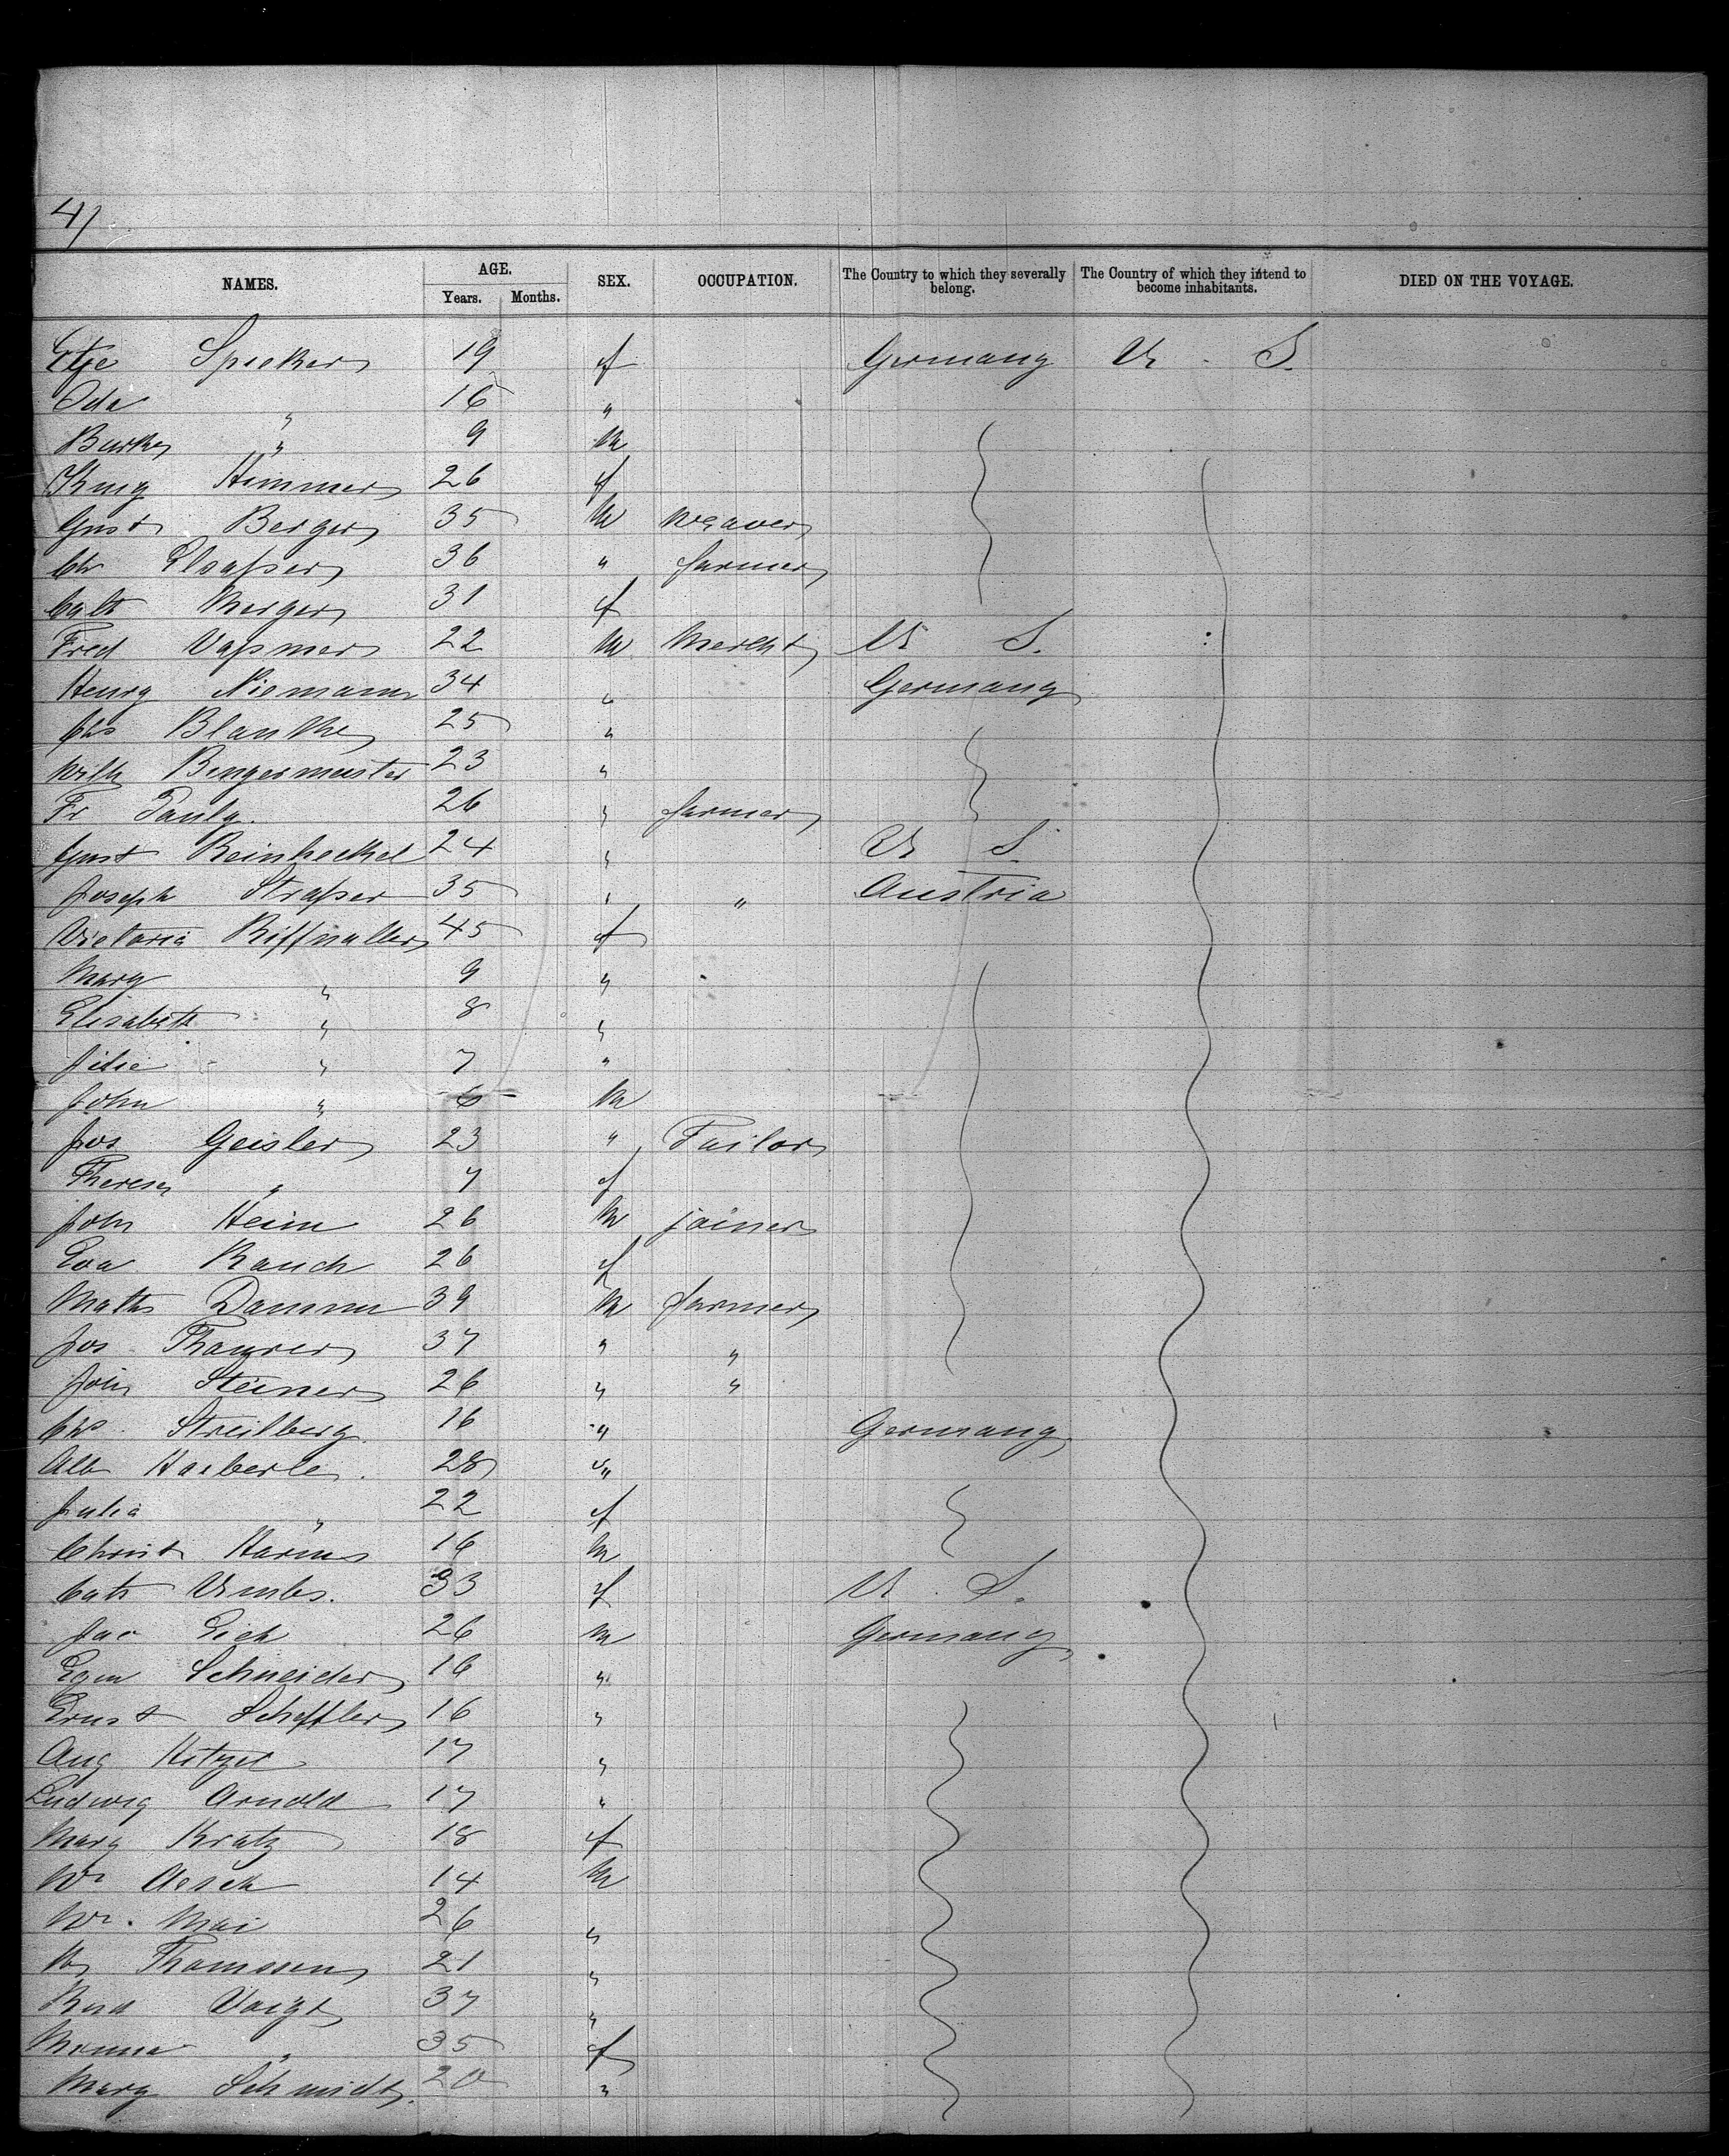 41
NAMES. AGE. SEX. OCCUPATION. The Country to which they severally belong. The Country of which they intend to become inhabitants. DIED ON THE VOYAGE.
Years. Months.
Etje Specker 19 f Germany U. S.
Oda " 16 "
" 9 m
Himmer 26 f
Gust Berger 35 m weaver
Chr Elsasser 36 " farmer
Cath Merger 31 f
Fred Vassmer 22 m Mercht U S.
Henry Niemann 34 " Germany
Blanke 25 "
Wilh Burgermeister 23 "
Fr Pauly. 26 " farmer
Gust Reinheckel 24 " U S.
Joseph Strasser 35 " " Austria
Victoria 45 f
Mary " 9 "
Elisabeth " 8 "
" 7 "
John " 6 m
Jos Geisler 23 " Tailor
Theresa " 7 f
John Heim 26 m joiner
Eva Rauch 26 f
Math Damm 39 m farmer
Jos Thaurer 37 " "
John Steiner 26 " "
Chs Streilberg 16 " Germany
Alb Haeberle. 28 "
Julia " 22 f
Christ Harms 16 m
Cath Umbs. 33 f U. S.
Jac Eich 26 m Germany
Egm Schneider 16 "
Ernst Scheffler 16 "
Aug Hitzel 17 "
Ludwig Arnold 17 "
Mary Kratz 18 f
Wm Aesch 14 m
Wm. Mai 26 "
Thomssen 21 "
Rud Voigt 37 "
Minna " 35 f
Mary Schmidt. 20 "